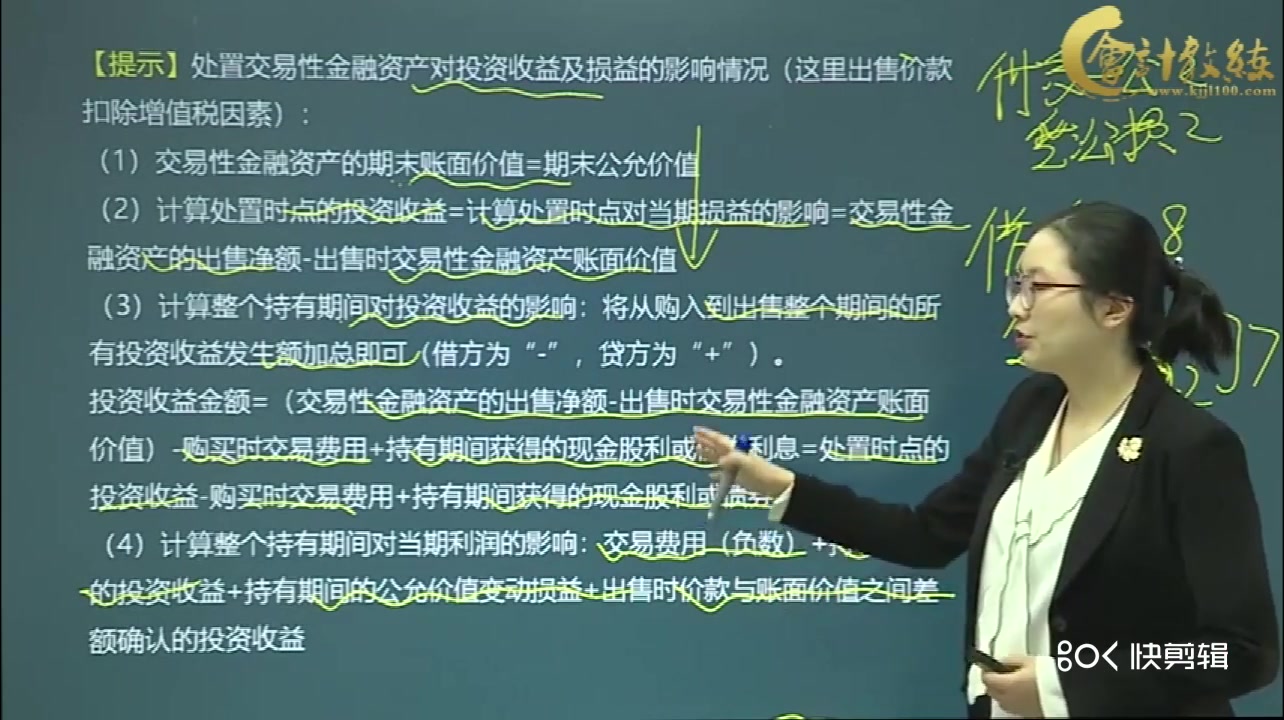 【提示】处置交易性金融资产对投资收益及损益的影响情况（这里出售价款
扣除增值税因素）：
（1）交易性金融资产的期末账面价值=期末公允价值
（2）计算处置时点的投资收益=计算处置时点对当期损益的影响=交易性金
融资产的出售净额-出售时交易性金融资产账面价值
（3）计算整个持有期间对投资收益的影响：将从购入到出售整个期间的所
有投资收益发生额加总即可（借方为“-”，贷方为“+”）。
投资收益金额=（交易性金融资产的出售净额-出售时交易性金融资产账面
价值）-购买时交易费用+持有期间获得的现金股利或 利息=处置时点的
投资收益-购买时交易费用+持有期间获得的现金股利或债券
（4）计算整个持有期间对当期利润的影响：交易费用（负数）+持
的投资收益+持有期间的公允价值变动损益+出售时价款与账面价值之间差
额确认的投资收益
會計教练
www.kjjl100.com
公损2
借
8
快剪辑